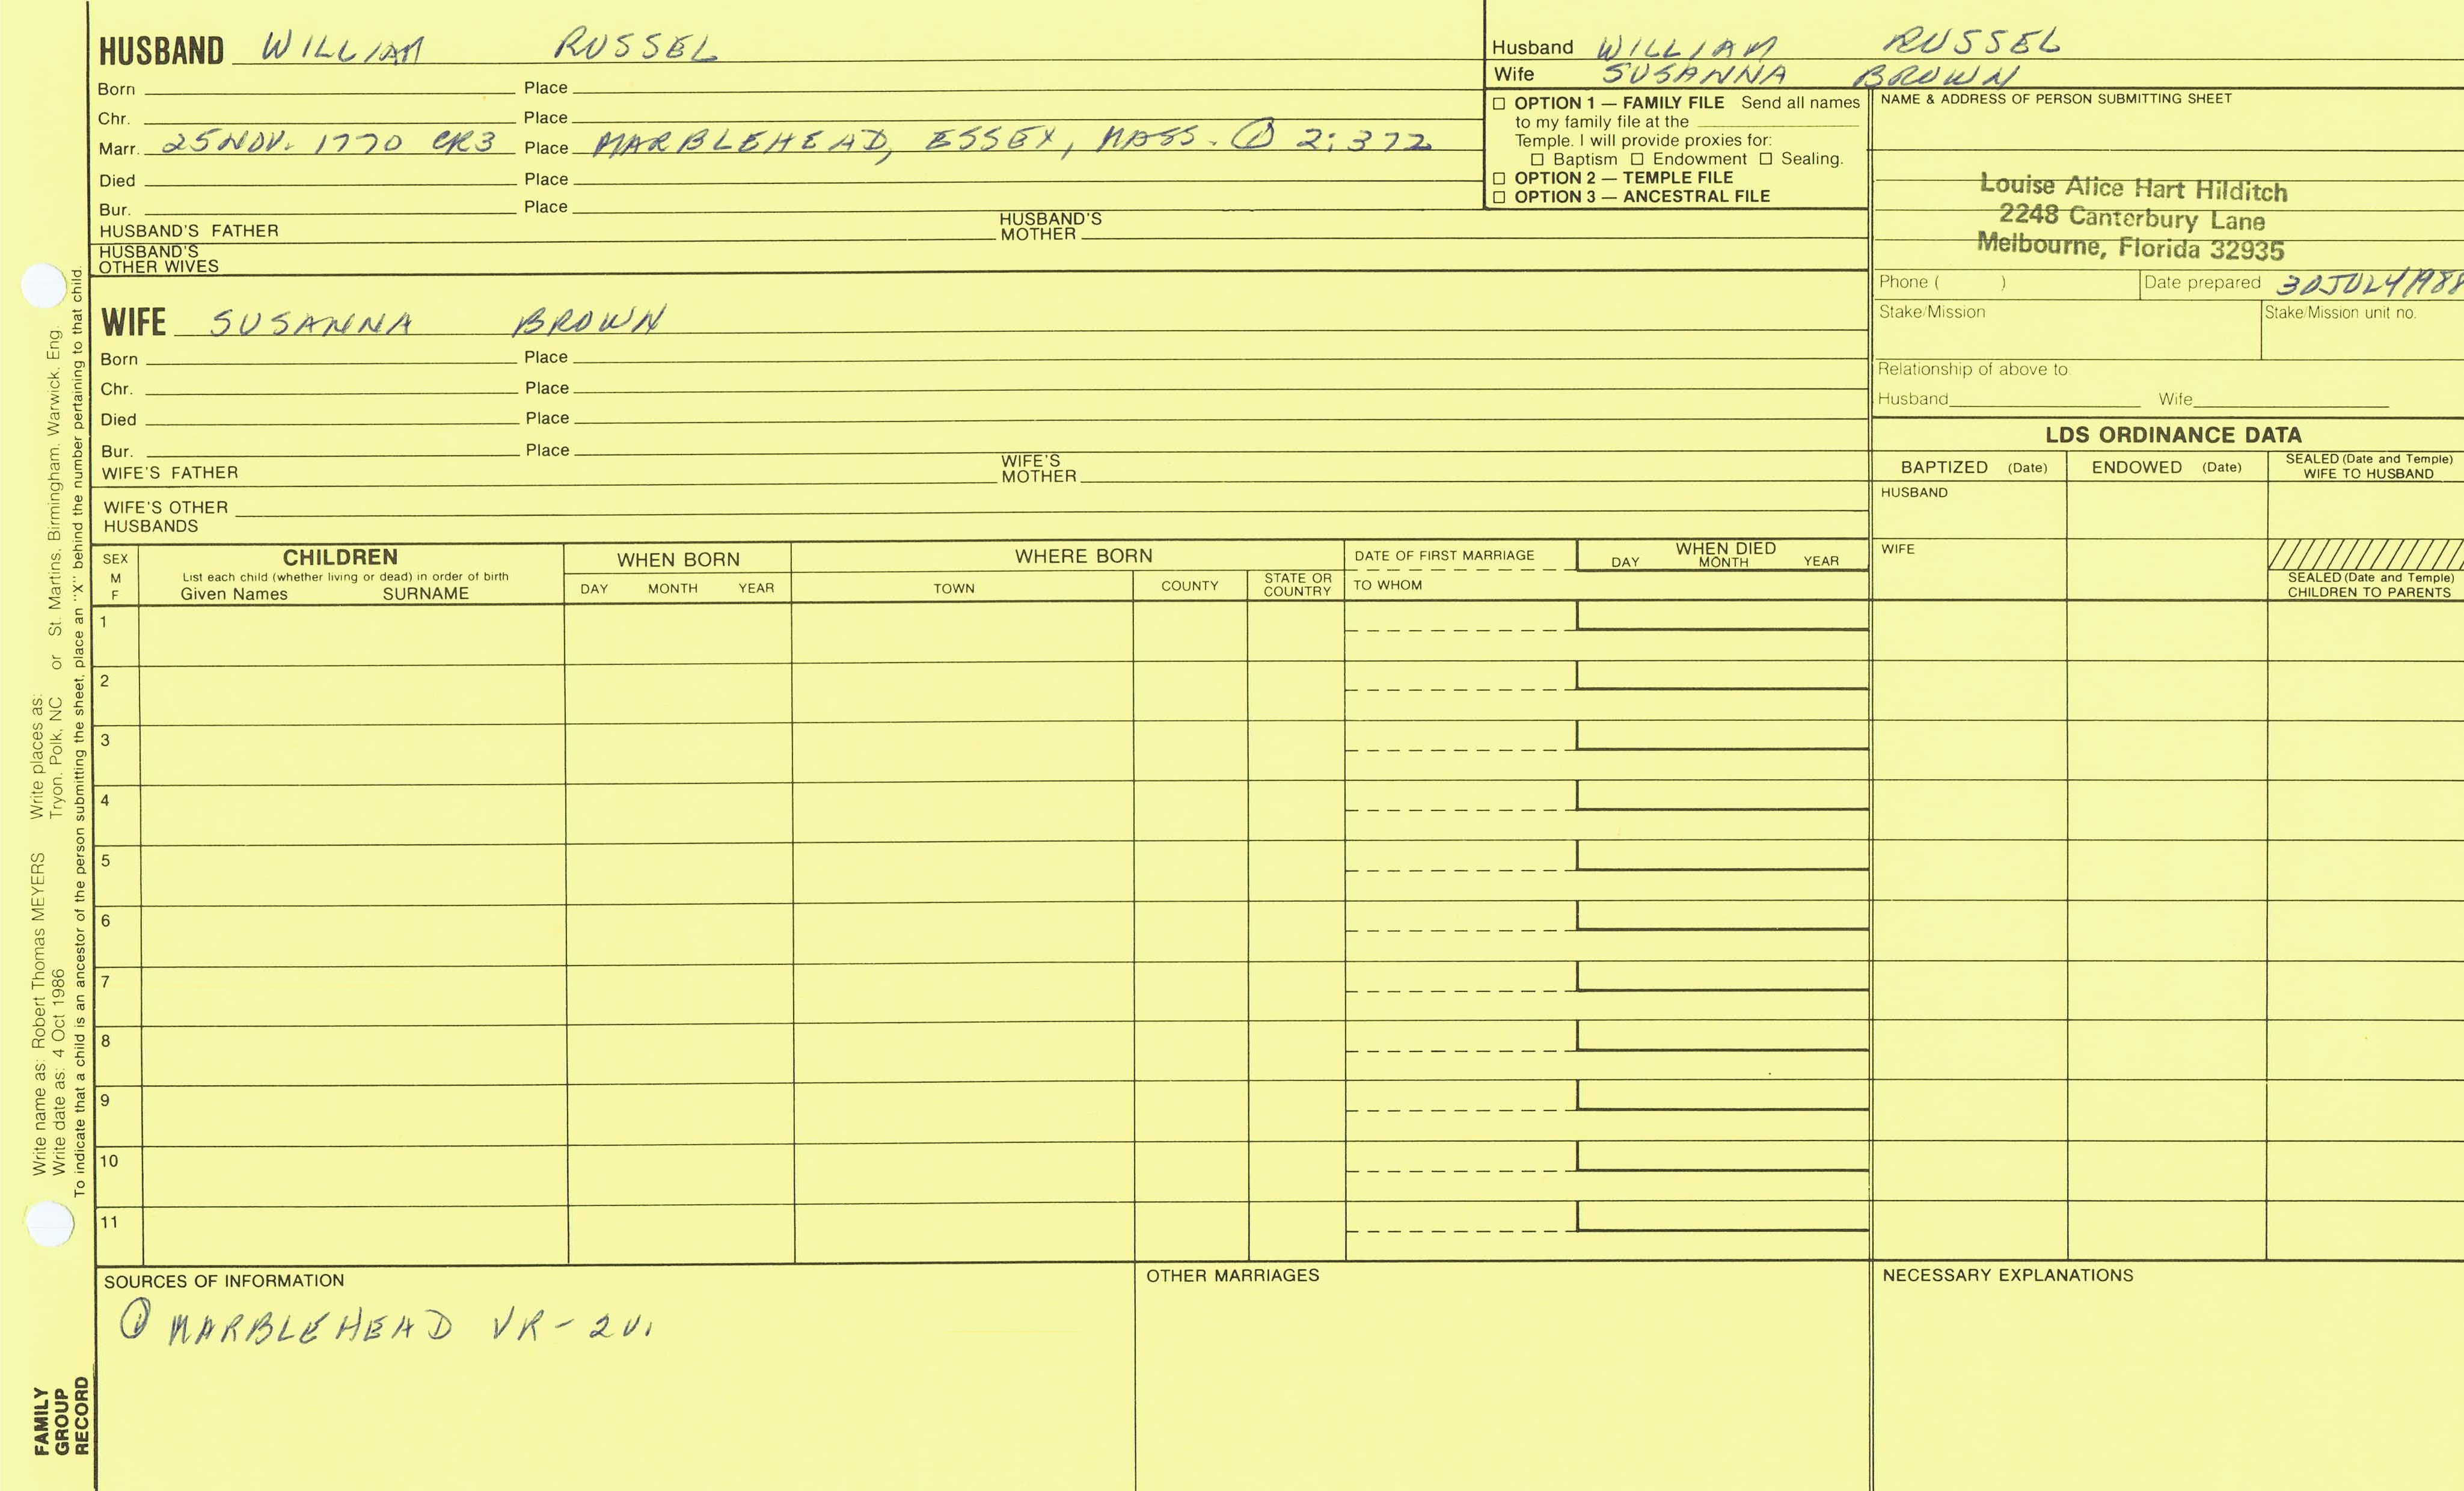 HUSBAND WILLIAM RUSSEL
Born Place
Chr. Place
Marr. 25 NOV. 1770 CR3 Place MARBLEHEAD, ESSEX, MASS. ① 2:372
Died Place
Bur. Place
HUSBAND'S FATHER HUSBAND'S MOTHER
HUSBAND'S
OTHER WIVES
Husband WILLIAM RUSSEL
Wife SUSANNA BROWN
☐ OPTION 1 — FAMILY FILE Send all names
to my family file at the
Temple. I will provide proxies for:
☐ Baptism ☐ Endowment ☐ Sealing.
☐ OPTION 2 — TEMPLE FILE
☐ OPTION 3 — ANCESTRAL FILE
NAME & ADDRESS OF PERSON SUBMITTING SHEET
Louise Alice Hart Hilditch
2248 Canterbury Lane
Melbourne, Florida 32935
Phone ( ) Date prepared 30 JULY 1988
Stake/Mission Stake/Mission unit no.
Relationship of above to
Husband Wife
WIFE SUSANNA BROWN
Born Place
Chr. Place
Died Place
Bur. Place
WIFE'S FATHER WIFE'S MOTHER
WIFE'S OTHER
HUSBANDS
LDS ORDINANCE DATA
BAPTIZED (Date) ENDOWED (Date) SEALED (Date and Temple) WIFE TO HUSBAND
HUSBAND
WIFE
SEALED (Date and Temple)
CHILDREN TO PARENTS
SEX
M
F
CHILDREN
List each child (whether living or dead) in order of birth
Given Names SURNAME
WHEN BORN
DAY MONTH YEAR
WHERE BORN
TOWN COUNTY STATE OR COUNTRY
DATE OF FIRST MARRIAGE
TO WHOM
WHEN DIED
DAY MONTH YEAR
1
2
3
4
5
6
7
8
9
10
11
SOURCES OF INFORMATION
① MARBLEHEAD VR - 2V.
OTHER MARRIAGES
NECESSARY EXPLANATIONS
Write name as: Robert Thomas MEYERS Write places as:
Write date as: 4 Oct 1986 Tryon, Polk, NC or St. Martins, Birmingham, Warwick, Eng.
To indicate that a child is an ancestor of the person submitting the sheet, place an "X" behind the number pertaining to that child.
FAMILY
GROUP
RECORD